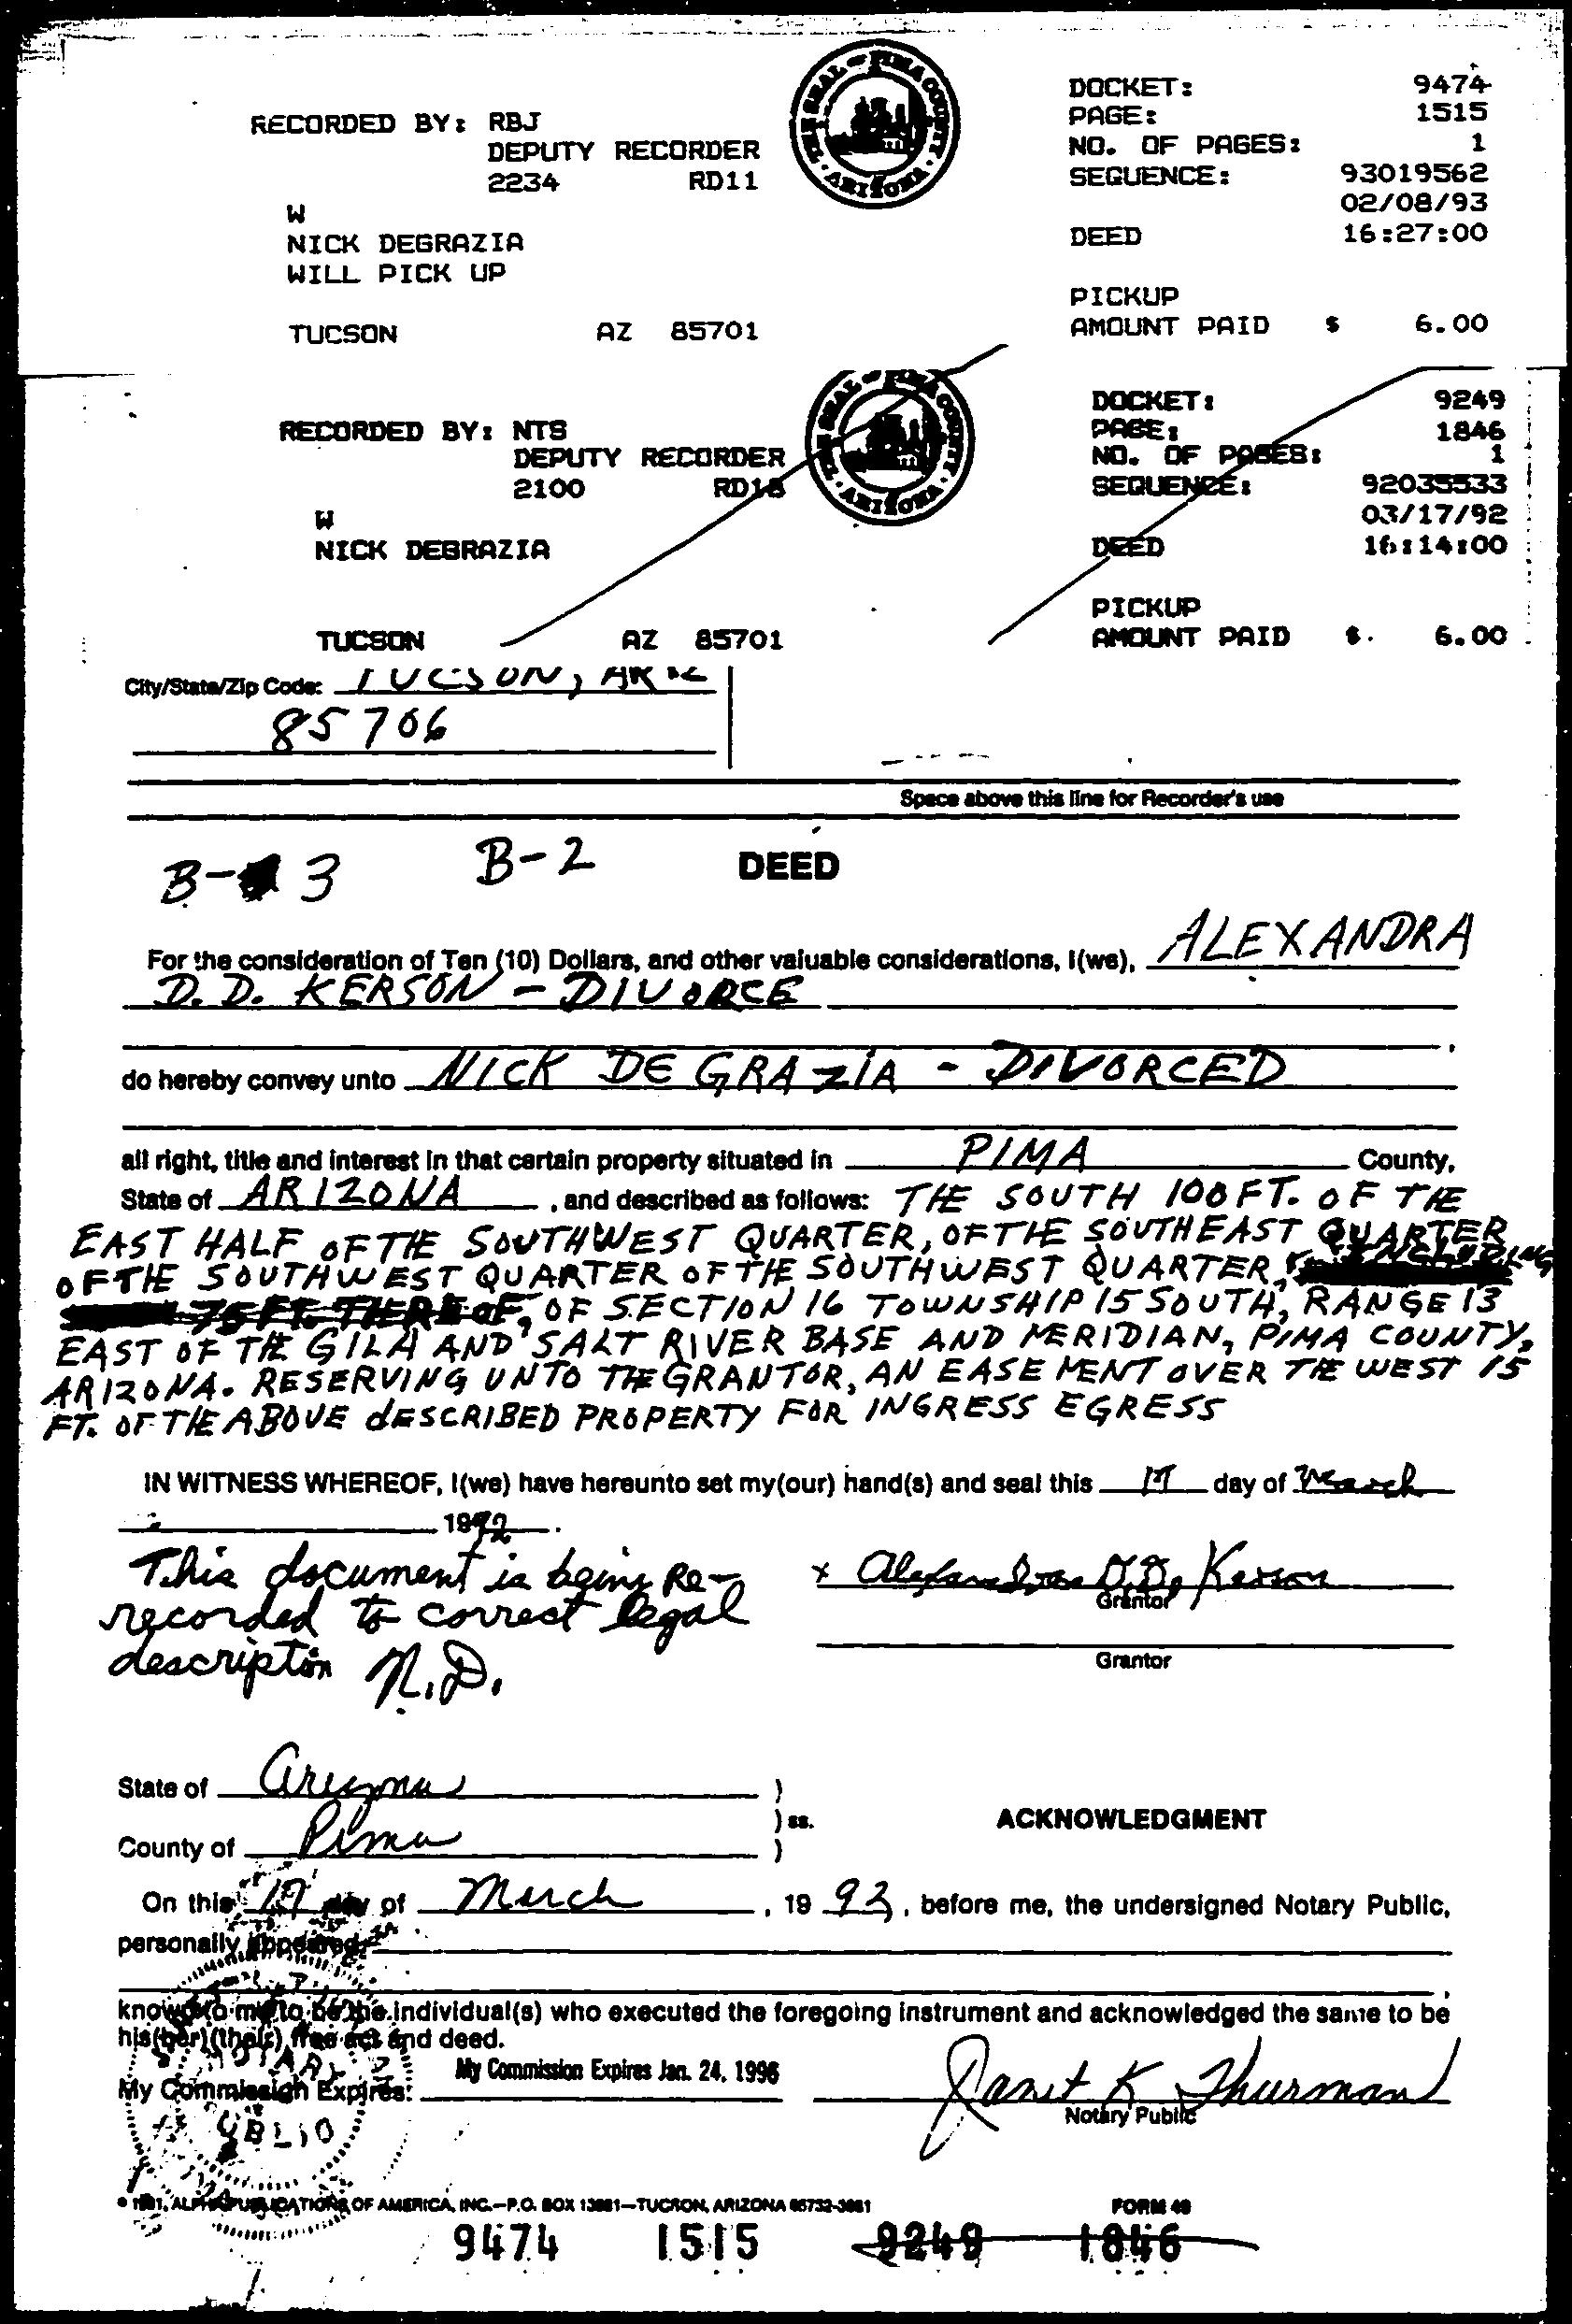 RECORDED BY: RBJ
DEPUTY RECORDER
2234 RD11
W
NICK DEGRAZIA
WILL PICK UP
TUCSON AZ 85701
THE SEAL OF PIMA COUNTY
ARIZONA
DOCKET: 9474
PAGE: 1515
NO. OF PAGES: 1
SEQUENCE: 93019562
02/08/93
DEED 16:27:00
PICKUP
AMOUNT PAID $ 6.00
RECORDED BY: NTS
DEPUTY RECORDER
2100
W
NICK DEGRAZIA
TUCSON AZ 85701
THE SEAL OF PIMA COUNTY
ARIZONA
DOCKET: 9249
PAGE: 1846
NO. OF PAGES: 1
SEQUENCE: 92035533
03/17/92
DEED 16:14:00
PICKUP
AMOUNT PAID $. 6.00
City/State/Zip Code: TUCSON, ARIZ
85706
Space above this line for Recorder's use
B- 3 B-2 DEED
For the consideration of Ten (10) Dollars, and other valuable considerations, I(we), ALEXANDRA
D. D. KERSON - DIVORCE
do hereby convey unto NICK DE GRAZIA - DIVORCED
all right, title and interest in that certain property situated in PIMA County,
State of ARIZONA, and described as follows: THE SOUTH 100 FT. OF THE
EAST HALF OF THE SOUTHWEST QUARTER, OF THE SOUTHEAST QUARTER
OF THE SOUTHWEST QUARTER OF THE SOUTHWEST QUARTER,
75 FT. THEREOF, OF SECTION 16 TOWNSHIP 15 SOUTH, RANGE 13
EAST OF THE GILA AND SALT RIVER BASE AND MERIDIAN, PIMA COUNTY,
ARIZONA. RESERVING UNTO THE GRANTOR, AN EASEMENT OVER THE WEST 15
FT. OF THE ABOVE dESCRIBED PROPERTY FOR INGRESS EGRESS
IN WITNESS WHEREOF, I(we) have hereunto set my(our) hand(s) and seal this 17 day of March
1992.
This document is being Re-
recorded to correct legal
description N.D.
x Alexandra D.D. Kerson
Grantor
Grantor
State of Arizona )
) ss. ACKNOWLEDGMENT
County of Pima )
On this 17 day of March, 19 92, before me, the undersigned Notary Public,
personally appeared
known to me to be the individual(s) who executed the foregoing instrument and acknowledged the same to be
his(her)(their) free act and deed.
My Commission Expires: My Commission Expires Jan. 24, 1996
Janet K Thurman
Notary Public
© 1981, ALPHA PUBLICATIONS OF AMERICA, INC.-P.O. BOX 13881-TUCSON, ARIZONA 85732-3881 FORM 49
9474 1515 9249 1846